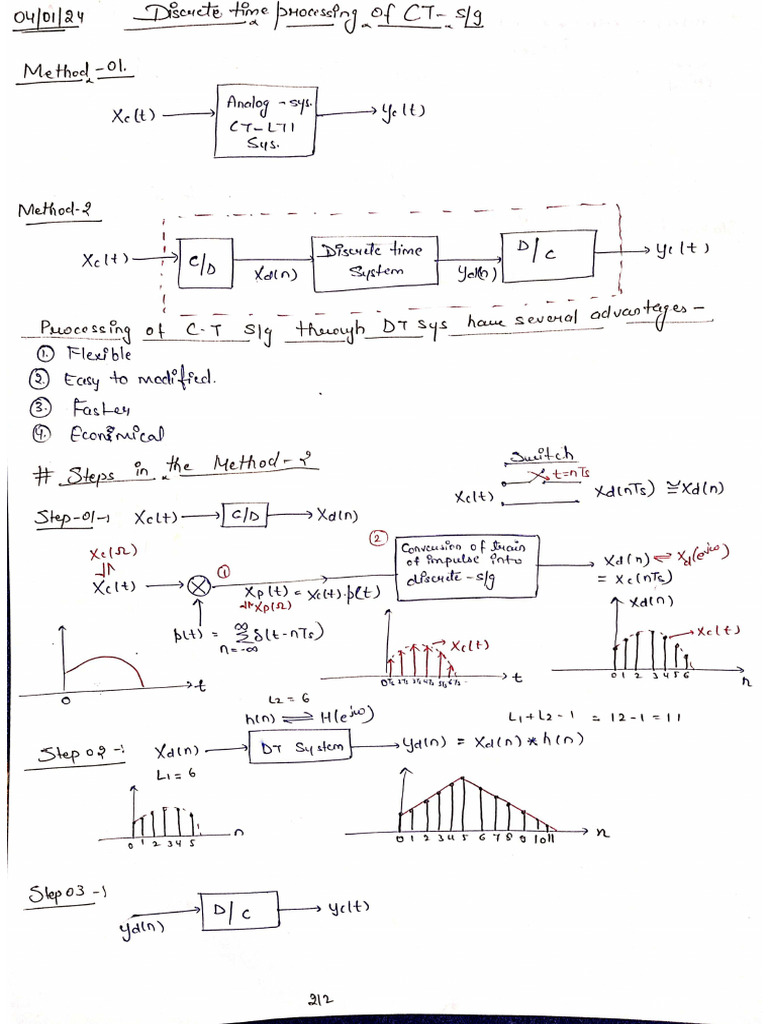 04/01/24 Discrete time processing of CT- s/g
Method-01.
Xc(t) Analog - sys. CT-LTI Sys. Yc(t)
Method-2
Xc(t) C/D Xd(n) Discrete time System Yd(n) D/C Yc(t)
Processing of C.T s/g through DT sys have several advantages-
① Flexible
② Easy to modified.
③ Faster
④ Econimical
# Steps in the Method-2
Switch
t=nTs
Xc(t) Xd(nTs) ≅ Xd(n)
Step-01-: Xc(t) C/D Xd(n)
Xc(Ω)
Xc(t) ① Xp(t) = Xc(t).p(t)
Xp(Ω)
② Conversion of train of impulse into discrete-s/g
Xd(n) ⇌ Xd(e^jω)
= Xc(nTs)
p(t) = ∞ Σ n=-∞ δ(t-nTs)
0 t
Xc(t)
t
Xd(n)
Xc(t)
0 1 2 3 4 5 6 n
L2 = 6
h(n) ⇌ H(e^jω)
L1+L2-1 = 12-1 = 11
Step 02-: Xd(n) DT System Yd(n) = Xd(n) * h(n)
L1 = 6
0 1 2 3 4 5 n
0 1 2 3 4 5 6 7 8 9 10 11 n
Step 03-: Yd(n) D/C Yc(t)
212